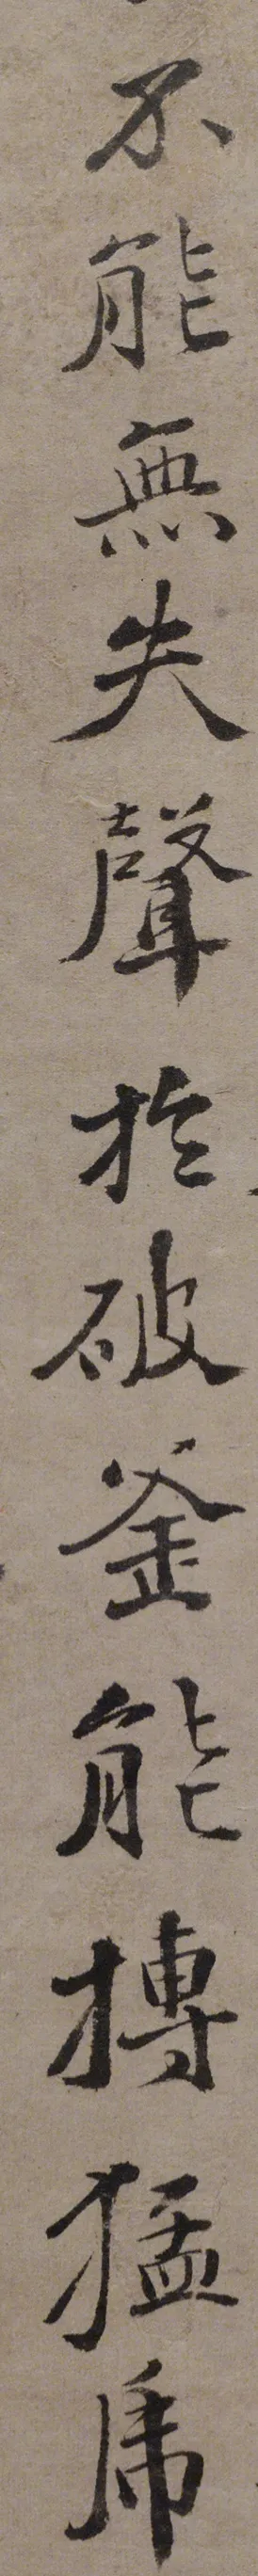 不能無失聲於破釜能搏猛虎